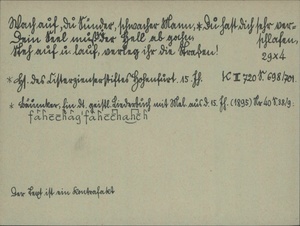 Wach auf, du Sünder, schwacher Mann, * Du hast dich sehr ver-
schlafen,
Dein Seel mußder Hell ab gahn
Steh auf u. lauf, verleg ihr die Straßen!
29x4
* Hs. des Cistercienserstiftes Hohenfurt, 15. Jh. K II 720 N° 698/701.
* Bäumker, Ein dt. geistl. Liederbuch mit Mel. aus d. 15. Jh. (1895) Nr 40 S. 38/9.
Der Text ist ein Kontrafakt